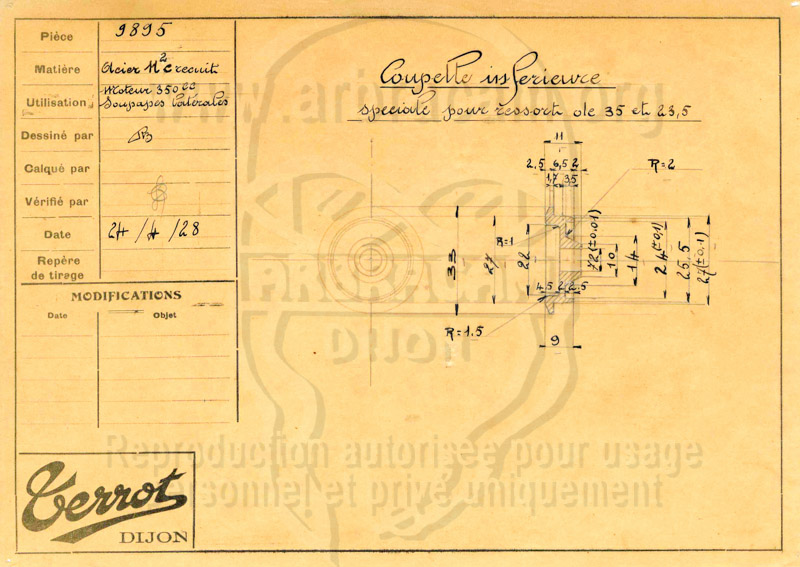 Pièce 9895
Matière Acier M2c recuit
Utilisation Moteur 350cc
Soupapes latérales
Dessiné par
Calqué par
Vérifié par
Date 24/4/28
Repère
de tirage
MODIFICATIONS
Date Objet
Terrot
DIJON
Coupelle inferieure
speciale pour ressort de 35 et 23,5
11
2,5 6,5 2
R=2
1,7 3,5
R=1
33
27
22
12(±0,01)
10
14
24(±0,1)
25,5
27(±0,1)
4,5 2 2,5
R=1.5
9
DIJON
Reproduction autorisée pour usage
personnel et privé uniquement